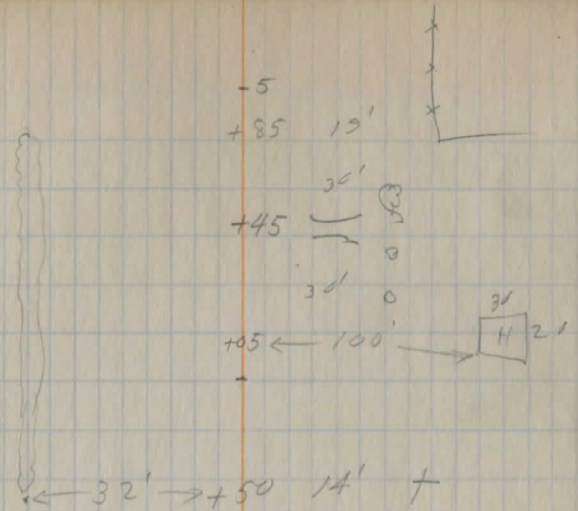 -5
+85 19'
30'
+45
30'
30'
+05 100' H 20'
32' +50 14'